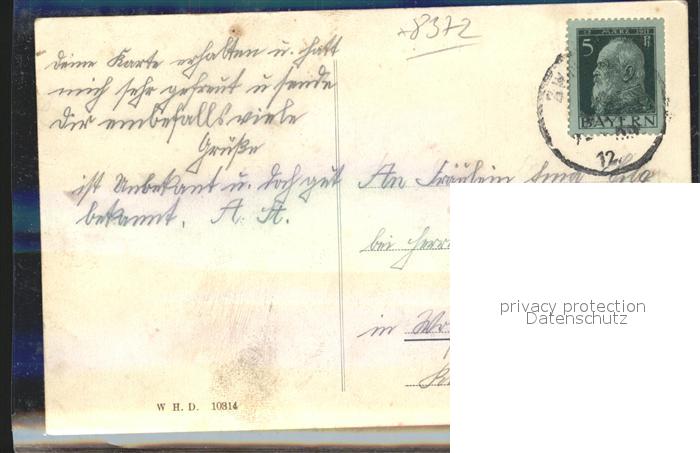 *8372
12. MÄRZ 1911
5 Pf
BAYERN
12.
Deine Karte erhalten u. hatt
mich sehr gefreut u sende
Dir ebenfalls viele
Grüße
ist Unbekant u. doch gut
bekannt. A. A.
An Fräulein
bei Herrn
in
W. H. D. 10314
privacy protection
Datenschutz